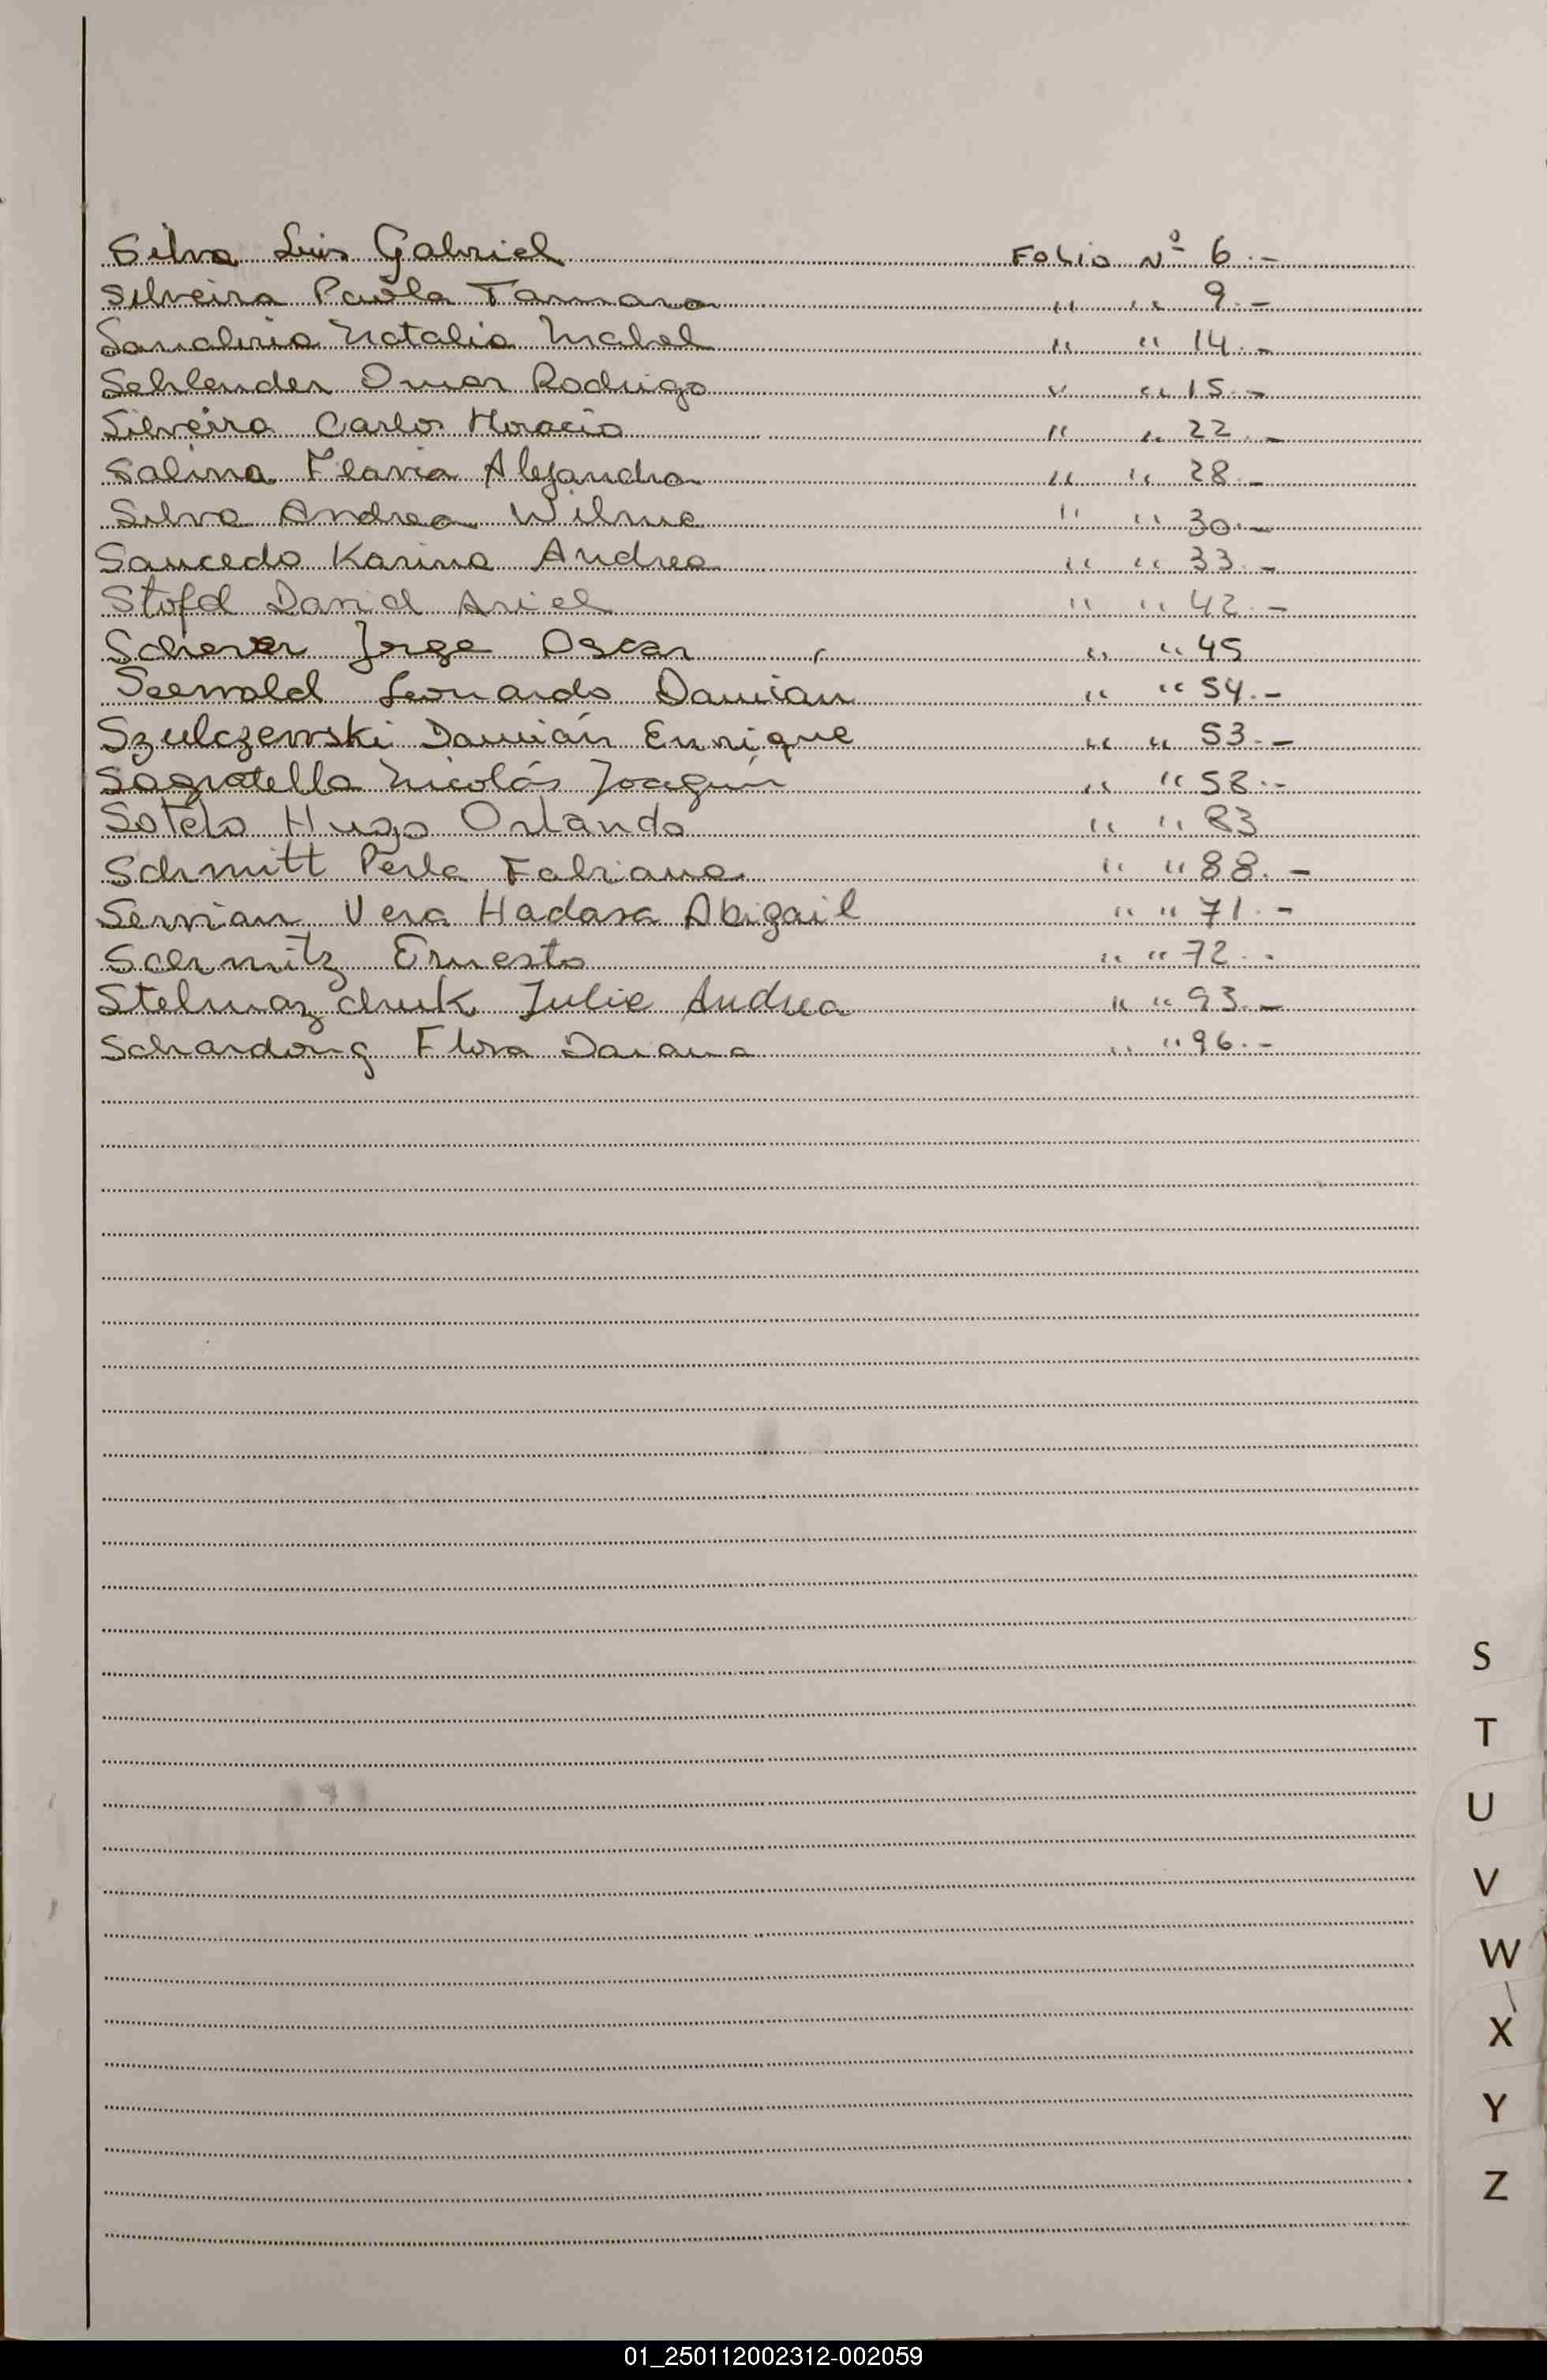 Silva Luis Gabriel Folio Nº 6.-
Silveira Paola Tamara " " 9.-
Sanabria Natalia Mabel " " 14.-
Schlender Omar Rodrigo " " 15.-
Silveira Carlos Horacio " " 22.-
Salina Flavia Alejandra " " 28.-
Silva Andrea Wilma " " 30.-
Saucedo Karina Andrea " " 33.-
Stofd David Ariel " " 42.-
Scherer Jorge Oscar " " 45
Seewald Leonardo Damian " " 54.-
Szulczewski Damián Enrique " " 53.-
Sagratella Nicolás Joaquín " " 58.-
Sotelo Hugo Orlando " " 83
Schmitt Perla Fabiana " " 88.-
Servian Vera Hadasa Abigail " " 71.-
Scermitz Ernesto " " 72.-
Stelmazchuk Julia Andrea " " 93.-
Schardong Flora Daiana " " 96.-
S
T
U
V
W
X
Y
Z
01_250112002312-002059